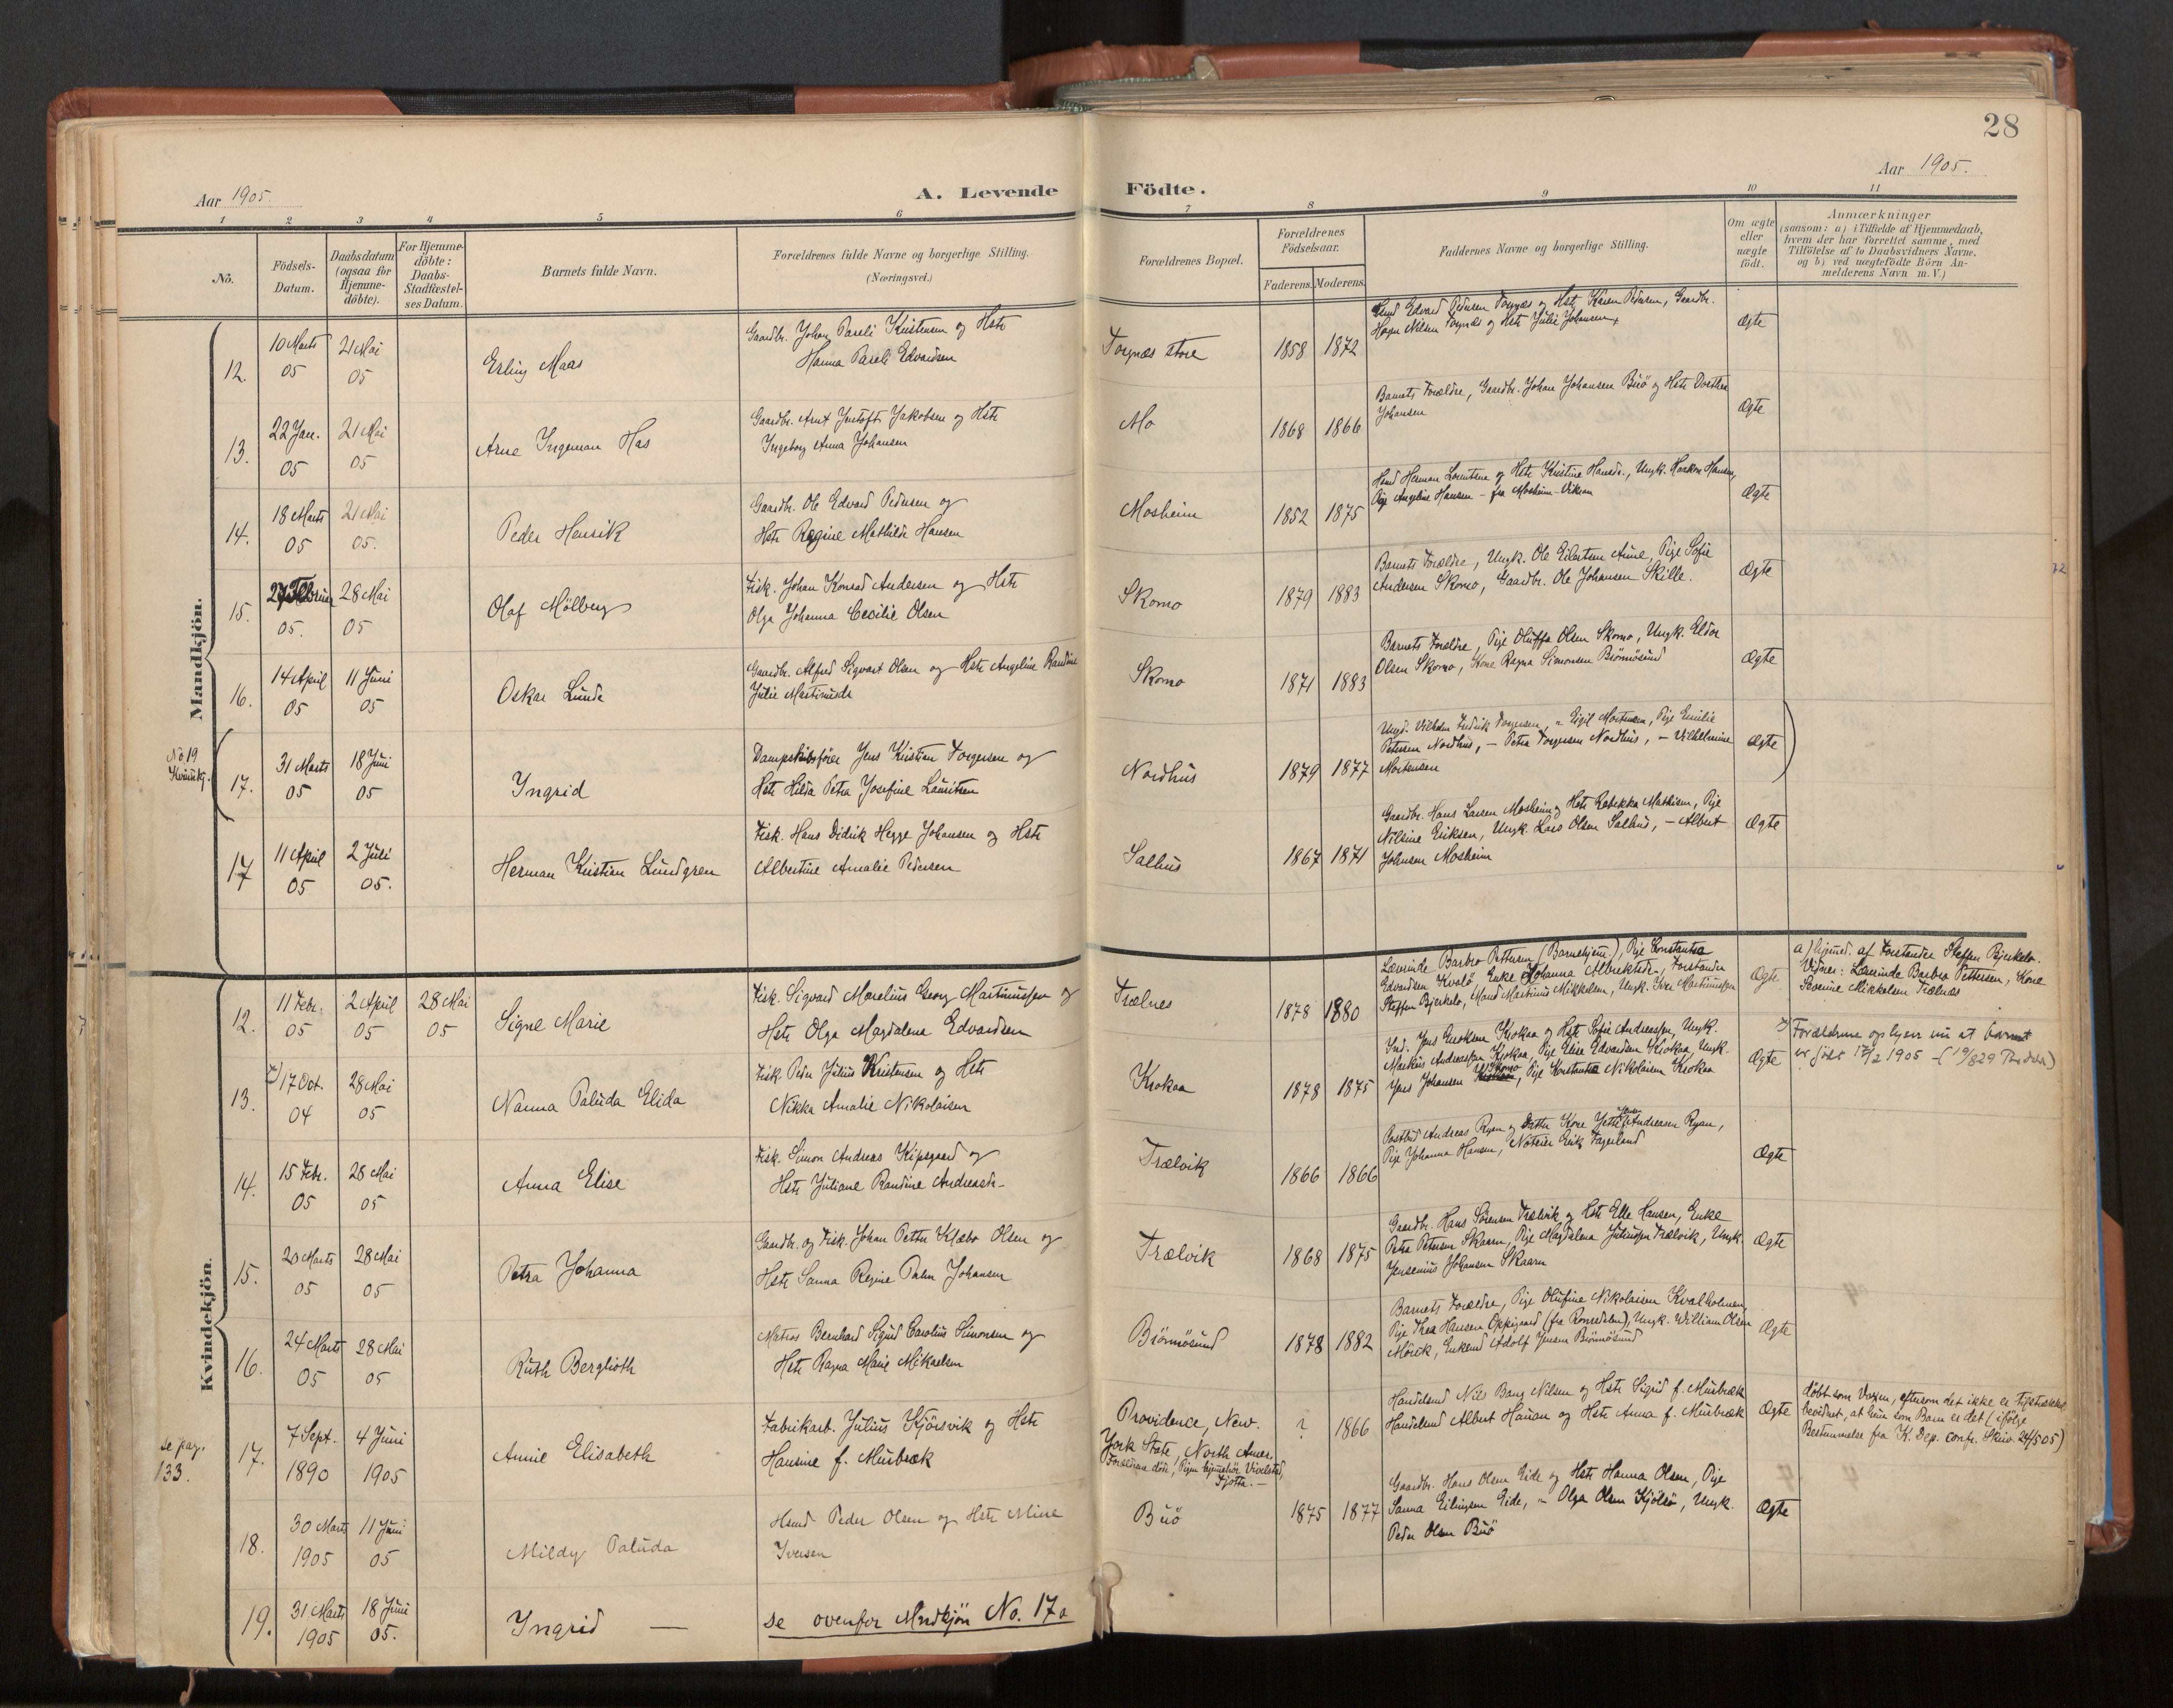 28
Aar 1905.
A. Levende Födte.
Aar 1905.
1 2 3 4 5 6 7 8 9 10 11
No.
Födsels-
Datum.
Daabsdatum
(ogsaa for
Hjemme-
döbte).
For Hjemme-
döbte:
Daabs-
Stadfæstel-
ses Datum.
Barnets fulde Navn.
Forældrenes fulde Navne og borgerlige Stilling.
(Næringsvei.)
Forældrenes Bopæl.
Forældrenes
Födselsaar.
Faderens. Moderens.
Faddernes Navne og borgerlige Stilling.
Om ægte
eller
uægte
födt.
Anmærkninger
(saasom: a) i Tilfælde af Hjemmedaab,
hvem der har forrettet samme, med
Tilföielse af to Daabsvidners Navne.
og b) ved uægtefödte Börn An-
melderens Navn m. V.)
Mandkjön.
12. 10 Marts 05 21 Mai 05 Erling Maas
Gaardbr. Johan Pareli Kristensen og Hstr
Hanna Pareli Edvardsen
Torgnæs store 1858 1872
Hsmd Edvard Pedersen Torgnæs og Hstr Karen Pedersen, Gaardbr.
Hagen Nilsen Torgnæs og Hstr Julie Johansen
Ægte
13. 22 Jan. 05 21 Mai 05 Arne Ingeman Has
Gaardbr. Arnt Jentoft Jakobsen og Hstr
Ingeborg Anna Johansen
Mo 1868 1866
Barnets Forældre, Gaardbr. Johan Johansen Buö og Hstr Dorthea
Johansen
Ægte
14. 18 Marts 05 21 Mai 05. Peder Henrik
Gaardbr. Ole Edvard Pedersen og
Hstr Regine Mathilde Hansen
Mosheim 1852 1875
Hsmd Herman Lorentsen og Hstr Kristine Hansdr., Ungk. Haakon Hansen,
Pige Angeline Hansen - fra Mosheim-Viksen
Ægte
15. 27 Februar 05. 28 Mai 05 Olaf Mölberg
Fisk. Johan Konrad Andersen og Hstr
Olga Johanna Cecilie Olsen
Skomo 1879 1883
Barnets Forældre, Ungk. Ole Eilertsen Aune, Pige Sofie
Andersen Skomo, Gaardbr. Ole Johansen Skille.
Ægte
16. 14 April 05 11 Juni 05 Oskar Lunde
Gaardbr. Alfred Sigvart Olsen og Hstr Angeline Randine
Julie Martinusdr
Skomo 1871 1883
Barnets Forældre, Pige Oluffa Olsen Skomo, Ungk. Eldor
Olsen Skomo, Kone Ragna Simonsen Brönnösund
Ægte
No 19
Kvindkj.
17. 31 Marts 05 18 Juni 05 Ingrid
Dampskibsförer Jens Kristian Torgersen og
Hstr Hilda Petra Josefine Lauritsen
Nordhus 1879 1877
Ungk. Vilhelm Fredrik Torgersen, " Eigil Mortensen, Pige Emilie
Petersen Nordhus, - Petra Torgersen Nordhus, - Vilhelmine
Mortensen
Ægte
17 11 April 05 2 Juli 05. Herman Kristian Lundgren
Fisk. Hans Didrik Hegge Johansen og Hstr
Albertine Amalie Pedersen
Salhus 1867 1871
Gaardbr. Hans Larsen Mosheim og Hstr Rebekka Mathisen, Pige
Nilsine Eriksen, Ungk. Lars Olsen Salhus, - Albert
Johansen Mosheim
Ægte
Kvindekjön.
12. 11 Febr. 05 2 April 05 28 Mai 05 Signe Marie
Fisk. Sigvard Marelius Georg Martinussen og
Hstr Olga Magdalena Edvardsen
Trælnes 1878 1880
Lærerinde Barbro Pettersen (Barnehjem), Pige Konstantsa
Edvardsen Kvalö, Enke Johanna Albrektsdr., Forstander
Steffen Bjerkelo, Mand Martinus Mikkelsen, Ungk. Iver Martinussen
Ægte
a) hjemmed. af Forstander Steffen Bjerkelo.
Vidner: Lærerinde Barbra Pettersen, Kone
Severine Mikkelsen Trælnæs
13. x) 17 Oct. 04 28 Mai 05 Nanna Paluda Elida
Fisk. Peder Julius Kristensen og Hstr
Nikka Amalie Nikolaisen
Krokaa 1878 1875
Ind. Jens Enoksen Krokaa og Hstr Sofie Andreassen, Ungk.
Markus Andreassen Krokaa, Pige Elise Edvardsen Krokaa, Ungk.
Jens Johansen Skomo, Pige Konstantse Nikolaisen Krokaa
Ægte
x) Forældrene oplyser nu at barnet
er födt 17/2 1905 - (19/8 29
14. 15 Febr. 05 28 Mai 05 Anna Elise
Fisk. Simon Andreas Kipsgaard og
Hstr Juliane Randine Andreasdr-
Trælvik 1866 1866
Postbud Andreas Ryan og Datter Kone Jette Jensen Andreasen Ryan,
Pige Johanna Hansen, Noterer Erik Torgeland
Ægte
15. 20 Marts 05 28 Mai 05 Petra Johanna
Gaardbr. og Fisk. Johan Petter Klæbo Olsen og
Hstr Sanna Regine Palm Johansen
Trælvik 1868 1875
Gaardbr. Hans Sörensen Trælvik og Hstr Elle Hansen, Enke
Petra Petersen Skaaren, Pige Magdalena Juliussen Trælvik, Ungk.
Jensenius Johansen Skaaren
Ægte
16. 24 Marts 05 28 Mai 05 Ruth Berglioth
Matros Bernhard Sigurd Carolius Simonsen og
Hstr Ragna Marie Mikaelsen
Brönnösund 1878 1882
Barnets Forældre, Pige Olufine Nikolaisen Kvalholmen,
Pige Thea Hansen Oppigaard (fra Romsdalen), Ungk. William Olsen
Mörck, Enkemd Adolf Jensen Brönnösund
Ægte
se pag.
133.
17. 7 Sept. 1890 4 Juni 1905 Annie Elisabeth
Fabrikarb. Julius Kjörsvik og Hstr
Hansine f. Musbræk
Providence, New.
York State, North Amer.
Forældrene döde, Pigen hjemmehör. Vivelstad,
Tjötta.-
? 1866
Handelsmd Nils Bang Nilsen og Hstr Sigrid f. Musbræk
Handelsmd Albert Hanan og Hstr Anna f. Musbræk
Ægte
döbt som Voxen, eftersom det ikke er tilstrækkel.
bevidnet, at hun som Barn er det (ifölge
Bestemmelse fra K. Dep. confr. Skriv. 24/5 05)
18. 30 Marts 1905 11 Juni 05 Mildy Paluda
Hsmd Peder Olsen og Hstr Mine
Iversen
Buö 1875 1877
Gaardbr. Hans Olsen Eide og Hstr Hanna Olsen, Pige
Sanna Eilingsen Eide, " Olga Olsen Kjölsö, Ungk.
Peder Olsen Buö
Ægte
19. 31 Marts 1905 18 Juni 05. Ingrid —
se ovenfor Mandkjön No. 17a